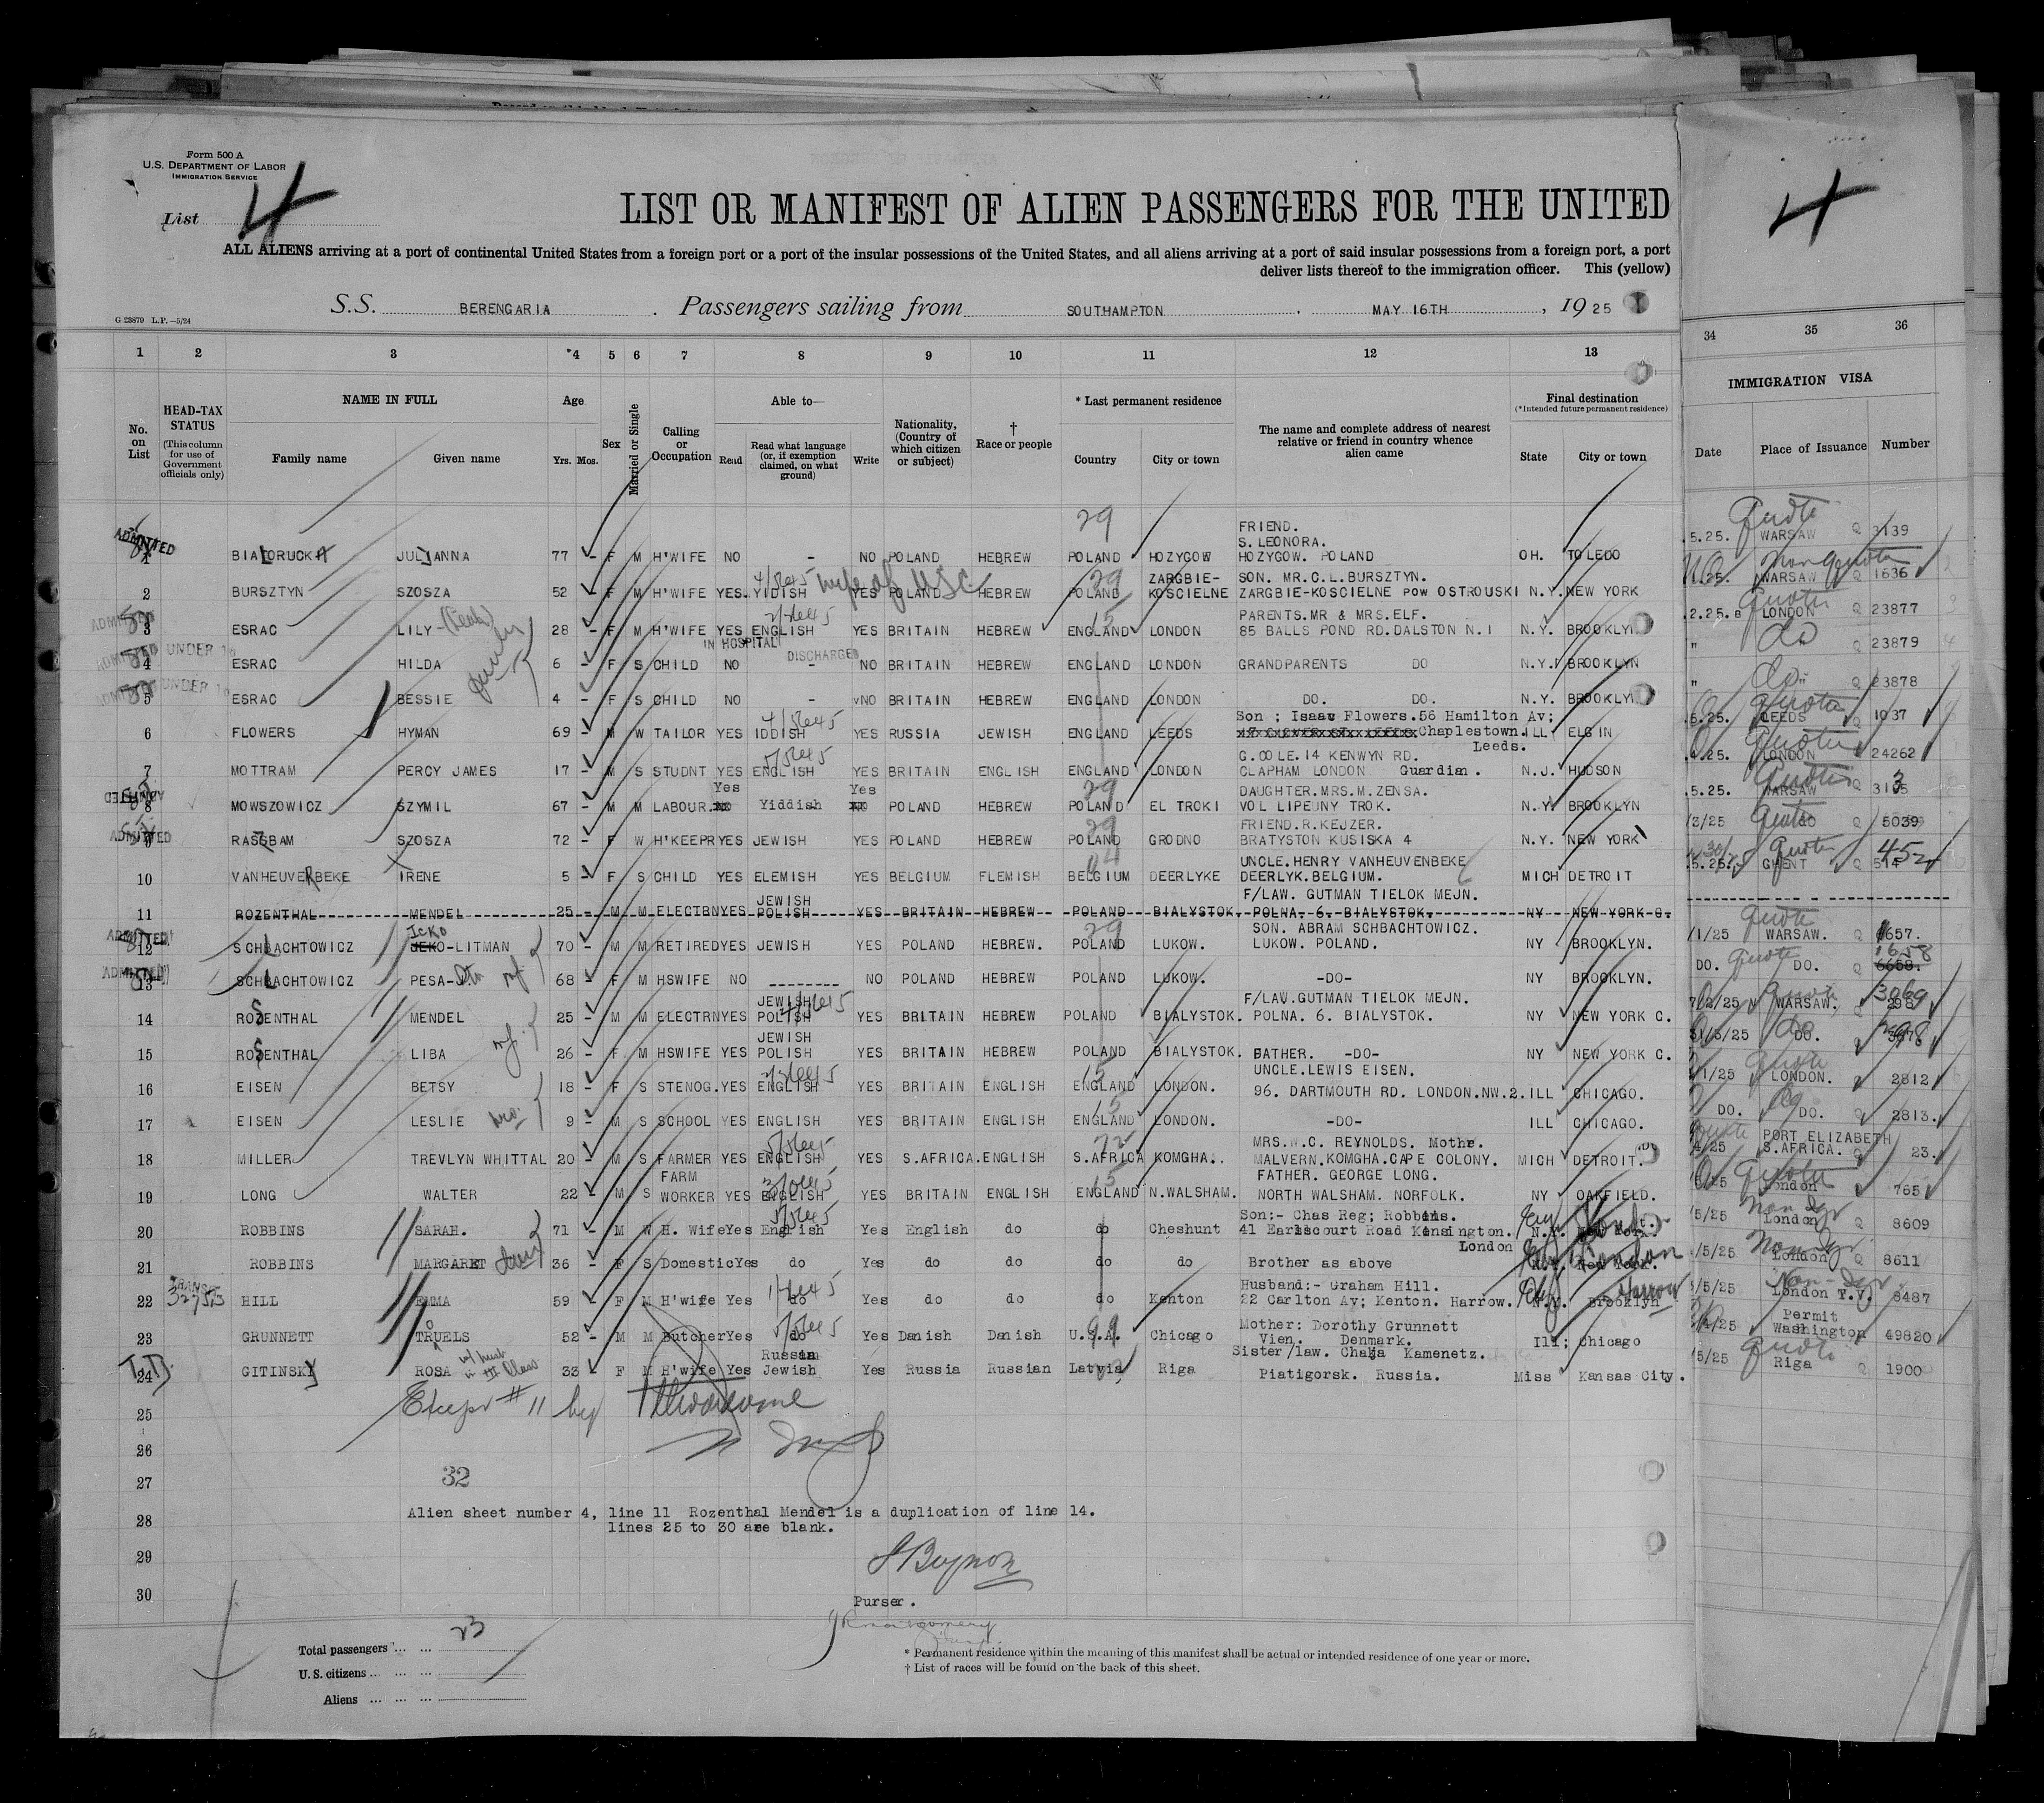 Form 500 A
U.S. DEPARTMENT OF LABOR
IMMIGRATION SERVICE
List 4
LIST OR MANIFEST OF ALIEN PASSENGERS FOR THE UNITED
4
ALL ALIENS arriving at a port of continental United States from a foreign port or a port of the insular possessions of the United States, and all aliens arriving at a port of said insular possessions from a foreign port, a port
deliver lists thereof to the immigration officer. This (yellow)
S.S. BERENGARIA. Passengers sailing from SOUTHAMPTON, MAY 16TH, 1925
G 23879 L.P.—5/24
1 2 3 *4 5 6 7 8 9 10 11 12 13 34 35 36
No. on List
HEAD-TAX STATUS
(This column for use of Government officials only)
NAME IN FULL
Family name
Given name
Age
Yrs. Mos.
Sex
Married or Single
Calling or Occupation
Able to—
Read
Read what language (or, if exemption claimed, on what ground)
Write
Nationality, (Country of which citizen or subject)
† Race or people
* Last permanent residence
Country
City or town
The name and complete address of nearest relative or friend in country whence alien came
Final destination
(*Intended future permanent residence)
State
City or town
IMMIGRATION VISA
Date
Place of Issuance
Number
FRIEND.
S. LEONORA.
ADMITTED 1 BIALORUCKA JULJANNA 77 - F M H'WIFE NO - NO POLAND HEBREW POLAND HOZYGOW HOZYGOW. POLAND OH. TOLEDO .5.25. Quota WARSAW Q 3139
ZARGBIE- SON. MR.C.L.BURSZTYN.
2 BURSZTYN SZOSZA 52 - F M H'WIFE YES. YIDISH wife of USC YES POLAND HEBREW POLAND KOSCIELNE ZARGBIE-KOSCIELNE POW OSTROUSKI N.Y. NEW YORK .25. Nonquota WARSAW Q 1636
PARENTS.MR & MRS.ELF.
ADMITTED 3 ESRAC LILY 28 - F M H'WIFE YES ENGLISH YES BRITAIN HEBREW ENGLAND LONDON 85 BALLS POND RD.DALSTON N.1 N.Y. BROOKLYN 2.25. Quota LONDON Q 23877
IN HOSPITAL DISCHARGED
ADMITTED UNDER 16 4 ESRAC HILDA 6 - F S CHILD NO - NO BRITAIN HEBREW ENGLAND LONDON GRANDPARENTS DO N.Y. BROOKLYN " do Q 23879
ADMITTED UNDER 16 5 ESRAC BESSIE 4 - F S CHILD NO - NO BRITAIN HEBREW ENGLAND LONDON DO. DO. N.Y. BROOKLYN " do Q 23878
Son ; Isaac Flowers.56 Hamilton Av;
6 FLOWERS HYMAN 69 - M W TAILOR YES IDDISH YES RUSSIA JEWISH ENGLAND LEEDS Chaplestown. ILL ELGIN .5.25. Quota LEEDS Q 1037
Leeds.
G.COLE.14 KENWYN RD.
7 MOTTRAM PERCY JAMES 17 - M S STUDNT YES ENGLISH YES BRITAIN ENGLISH ENGLAND LONDON CLAPHAM LONDON Guardian. N.J. HUDSON .25. Quota LONDON 24262
Yes Yes DAUGHTER.MRS.M.ZENSA.
ADMITTED 8 MOWSZOWICZ SZYMIL 67 - M M LABOUR. NO Yiddish NO POLAND HEBREW POLAND EL TROKI VOL LIPEUNY TROK. N.Y. BROOKLYN .5.25. Quota WARSAW Q 3135
FRIEND.R.KEJZER.
ADMITTED 9 RASZBAM SZOSZA 72 - F W H'KEEPR YES JEWISH YES POLAND HEBREW POLAND GRODNO BRATYSTON KUSISKA 4 N.Y. NEW YORK /3/25 Quota DO Q 5039
UNCLE.HENRY VANHEUVENBEKE
10 VANHEUVERBEKE IRENE 5 - F S CHILD YES ELEMISH YES BELGIUM FLEMISH BELGIUM DEERLYKE DEERLYK.BELGIUM. MICH DETROIT Quota GHENT Q 452
JEWISH F/LAW. GUTMAN TIELOK MEJN.
11 ROZENTHAL MENDEL 25 - M M ELECTRN YES POLISH YES BRITAIN HEBREW POLAND BIALYSTOK. POLNA. 6. BIALYSTOK. NY NEW YORK C.
Icko SON. ABRAM SCHBACHTOWICZ.
ADMITTED 12 SCHLACHTOWICZ JEKO-LITMAN 70 - M M RETIRED YES JEWISH YES POLAND HEBREW. POLAND LUKOW. LUKOW. POLAND. NY BROOKLYN. /1/25 Quota WARSAW. Q 1657.
ADMITTED 13 SCHLACHTOWICZ PESA 68 - F M HSWIFE NO -------- NO POLAND HEBREW POLAND LUKOW. -DO- NY BROOKLYN. DO. Quota DO. Q 6658. 1658
JEWISH F/LAW.GUTMAN TIELOK MEJN.
14 ROSENTHAL MENDEL 25 - M M ELECTRN YES POLISH YES BRITAIN HEBREW POLAND BIALYSTOK. POLNA. 6. BIALYSTOK. NY NEW YORK C. /2/25 Quota WARSAW. 3069
JEWISH
15 ROSENTHAL LIBA 26 - F M HSWIFE YES POLISH YES BRITAIN HEBREW POLAND BIALYSTOK. FATHER. -DO- NY NEW YORK C. /3/25 DO.
UNCLE.LEWIS EISEN.
16 EISEN BETSY 18 - F S STENOG. YES ENGLISH YES BRITAIN ENGLISH ENGLAND LONDON. 96. DARTMOUTH RD. LONDON.NW.2. ILL CHICAGO. /1/25 Quota LONDON. 2812
17 EISEN LESLIE bro: 9 - M S SCHOOL YES ENGLISH YES BRITAIN ENGLISH ENGLAND LONDON. -DO- ILL CHICAGO. DO. DO. 2813.
MRS.W.C. REYNOLDS. Mothr. PORT ELIZABETH
18 MILLER TREVLYN WHITTAL 20 - M S FARMER YES ENGLISH YES S.AFRICA. ENGLISH S.AFRICA KOMGHA. MALVERN.KOMGHA.CAPE COLONY. MICH DETROIT. 4/25 S.AFRICA. Q 23.
FARM FATHER. GEORGE LONG.
19 LONG WALTER 22 - M S WORKER YES ENGLISH YES BRITAIN ENGLISH ENGLAND N.WALSHAM. NORTH WALSHAM. NORFOLK. NY OAKFIELD. /25 Quota London 765
Son:- Chas Reg; Robbins.
20 ROBBINS SARAH. 71 - M W H. Wife Yes English Yes English do do Cheshunt 41 Earlscourt Road Kensington. N.Y. New York. /5/25 London Q 8609
London
21 ROBBINS MARGARET 36 - F S Domestic Yes do Yes do do do do Brother as above N.Y. New York. London /5/25 London Q 8611
Husband:- Graham Hill.
TRANS 22 HILL EMMA 59 - F M H'wife Yes do Yes do do do Kenton 22 Carlton Av; Kenton. Harrow. N.Y. Brooklyn Harrow /5/25 London T.V. 8487
Mother: Dorothy Grunnett Permit
23 GRUNNETT TRUELS 52 - M M Butcher Yes do Yes Danish Danish U.S.A. Chicago Vien. Denmark. Ill; Chicago /25 Washington 49820
Russian Sister/law. Chaja Kamenetz.
24 GITINSKY ROSA 33 - F M H'wife Yes Jewish Yes Russia Russian Latvia Riga Piatigorsk. Russia. Miss Kansas City. /5/25 Quota Riga Q 1900
25 Except # 11
26
27 32
28 Alien sheet number 4, line 11 Rozenthal Mendel is a duplication of line 14.
lines 25 to 30 are blank.
29
30
Purser.
Total passengers 23
U.S. citizens
Aliens
* Permanent residence within the meaning of this manifest shall be actual or intended residence of one year or more.
† List of races will be found on the back of this sheet.